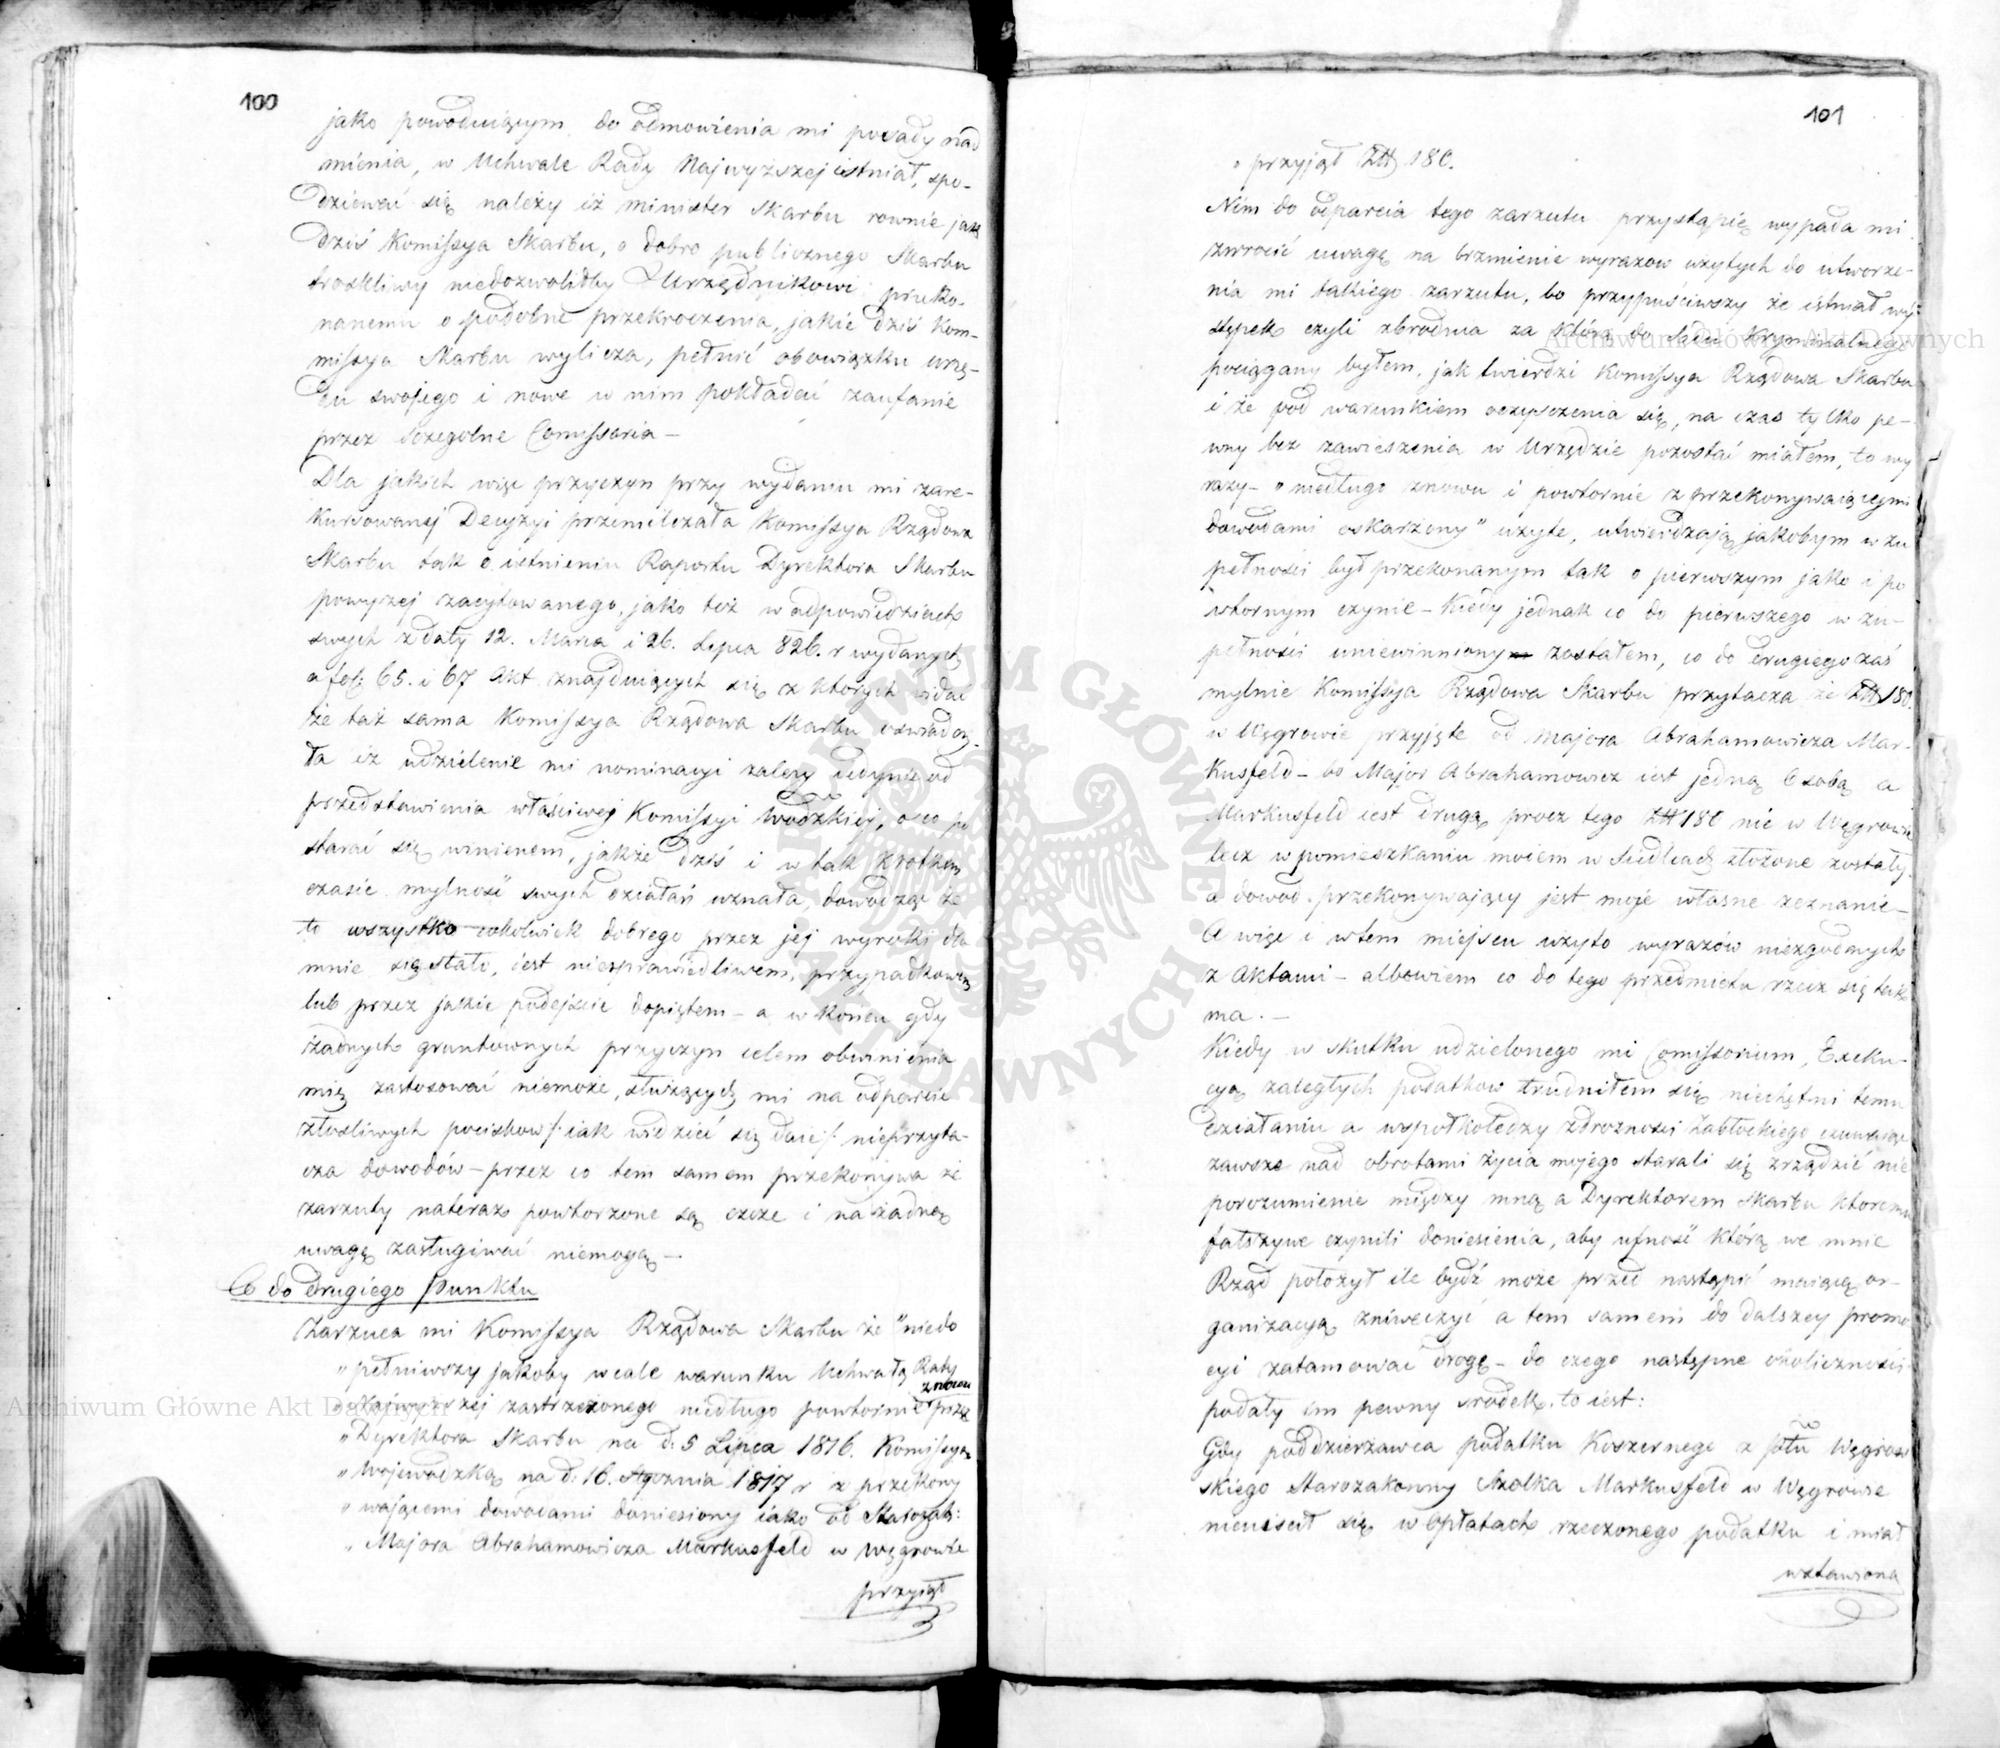 100
jako powoduiącym do odmowienia mi posady nad
mienia, w Uchwale Rady Najwyższej istniał, spo-
dziewać się należy iż minister Skarbu rownie jak
dziś Komissya Skarbu, o dobro publicznego Skarbu
troskliwy niedozwoliłby Urzędnikowi przeko-
nanemu o podobne przekroczenia, jakie dziś Kom-
missya Skarbu wylicza, pełnić obowiązku urzę-
du swojego i nowe w nim pokładać zaufanie
przez szczegolne Comissoria –
Dla jakich więc przyczyn przy wydaniu mi zare-
kursowanej Decyzyi przemilczała Komissya Rządowa
Skarbu tak o istnieniu Raportu Dyrektora Skarbu
powyżej zacytowanego, jako też w odpowiedziach
swych z daty 12. Marca i 26. Lipca 826. r wydanych
a fol: 65. i 67 Akt znajduiących się z ktorych widać
że taż sama Komissya Rządowa Skarbu oswiadczy-
ła iż udzielenie mi nominacyi zależy jedynie od
przedstawienia właściwej Komissyi Wodzkiej, o co po
starać się winienem, jakże dziś i w tak krotkim
czasie mylność swych działań uznała, dowodząc że
to wszystko cokolwiek dobrego przez jej wyroki dla
mnie się stało, iest niesprawiedliwem, przypadkowem
lub przez jakie podejście dopiętem – a w końcu gdy
żadnych gruntownych przyczyn celem obwinienia
mię zastosować niemoże, służących mi na odparcie
złosliwych pociskow /: iak widzieć się daie :/ nieprzyta-
cza dowodów – przez co tem samem przekonywa że
zarzuty nateraz powtorzone są czcze i na żadną
uwagę zasługiwać niemogą –
Co do drugiego Punktu
Zarzuca mi Komissya Rządowa Skarbu że "niedo
„ pełniwszy jakoby wcale warunku Uchwałą Rady
„ Najwyższej zastrzeżonego niedługo powtornie znowu przez
„ Dyrektora Skarbu na d. 5 Lipca 1816. Komissyą
„ Wojewodzką na d. 16. Stycznia 1817 r z przekony
„ waiącemi dowodami doniesiony iako od Starozak:
„ Majora Abrahamowicza Markusfeld w Węgrowie
przyiął
101
„ przyjął Złł 180.
Nim do odparcia tego zarzutu przystąpię wypada mi
zwrocić uwagę na brzmienie wyrazow użytych do utworze-
nia mi takiego zarzutu, bo przypuściwszy że istniał wy-
stępek czyli zbrodnia za którą do Sądu Kryminalnego
pociągany byłem, jak twierdzi Komissya Rządowa Skarbu
i że pod warunkiem oczyszczenia się, na czas tylko pe-
wny bez zawieszenia w Urzędzie pozostać miałem, to wy
razy – „ niedługo znowu i powtornie z przekonywaiącymi
dowodami oskarżony" użyte, utwierdzają jakobym w zu
pełności był przekonanym tak o pierwszym jako i po
wtornym czynie – Kiedy jednak co do pierwszego w zu-
pełności uniewinniony zostałem, co do drugiego zaś
mylnie Komissya Rządowa Skarbu przytacza że Złł 180.
w Węgrowie przyjęte od Majora Abrahamowicza Mar-
kusfeld – bo Major Abrahamowicz iest jedną Osobą a
Markusfeld iest drugą, procz tego Złł 180 nie w Węgrowie
lecz w pomieszkaniu moiem w Siedlcach złożone zostały
a dowod przekonywający jest moje własne zeznanie –
A więc i w tem miejscu użyto wyrazów niezgodnych
z Aktami – albowiem co do tego przedmiotu rzecz się tak
ma. –
Kiedy w skutku udzielonego mi Comissorium, Exeku-
cyą zaległych podatkow trudniłem się niechętni temu
działaniu a wspołkoledzy zdrozności Zabłockiego czuwaiąc
zawsze nad obrotami życia mojego starali się zrządzić nie
porozumienie między mną a Dyrektorem Skarbu ktoremu
fałszywe czynili doniesienia, aby ufność którą we mnie
Rząd położył ile bydź może przed nastąpić maiącą or-
ganizacyą zniweczyć a tem samem do dalszey promo
cyi zatamować drogę – do czego następne okoliczności
podały im pewny srodek. to iest:
Gdy poddzierzawca podatku Koszernego z powtu Węgrow
skiego Starozakonny Szolka Markusfeld w Węgrowie
nieuiscił się w Opłatach rzeczonego podatku i miał
wstawioną